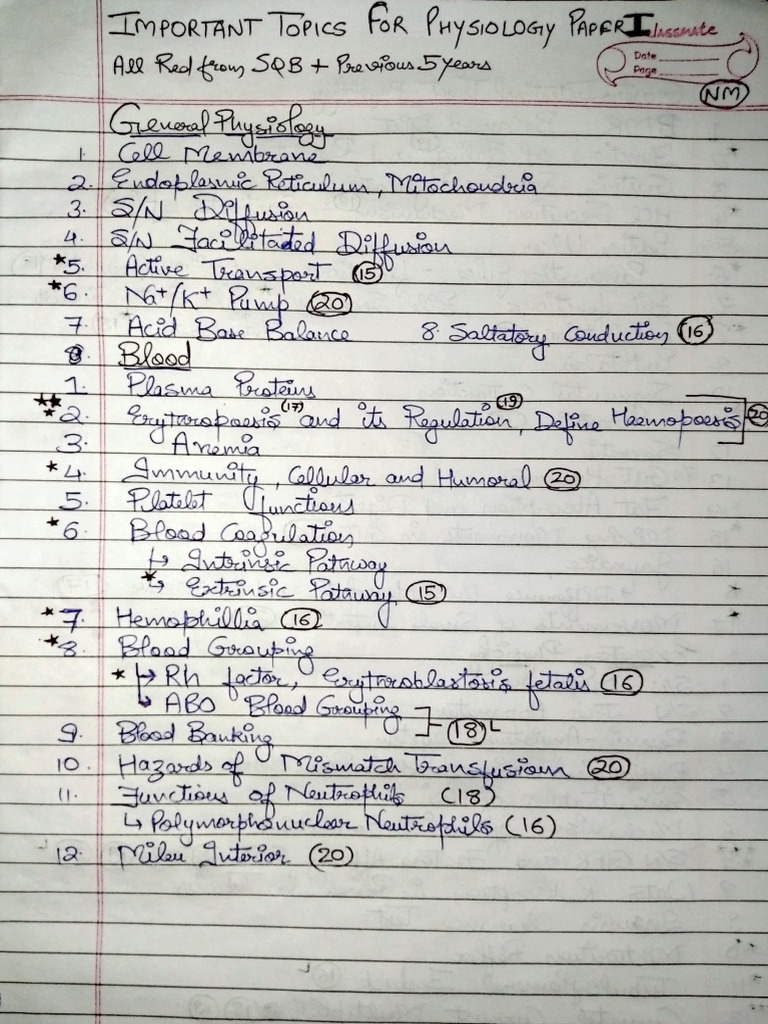 IMPORTANT TOPICS FOR PHYSIOLOGY PAPER I classmate
All Red from SQB + Previous 5 years
Date
Page
NM
General Physiology
1. Cell Membrane
2. Endoplasmic Reticulum, Mitochondria
3. S/N Diffusion
4. S/N Facilitaded Diffusion
*5. Active Transport (15)
*6. Na+/K+ Pump (20)
7. Acid Base Balance 8. Saltatory Conduction (16)
Blood
1. Plasma Proteins
***2. Erytaropoesis (17) and its Regulation (19), Define Haemopoesis (20)
3. Anemia
*4. Immunity, Cellular and Humoral (20)
5. Platelet functions
*6. Blood Coagulation
↳ Intrinsic Patuway
*↳ Extrinsic Patuway (15)
*7. Hemophillia (16)
*8. Blood Grouping
* ↳ Rh factor, Erytroblastosis fetalis (16)
↳ ABO Blood Grouping
9. Blood Banking (18) L
10. Hazards of Mismatch Transfusion (20)
11. Functions of Neutrophils (18)
↳ Polymorphonuclear Neutrophils (16)
12. Mileu Interior (20)